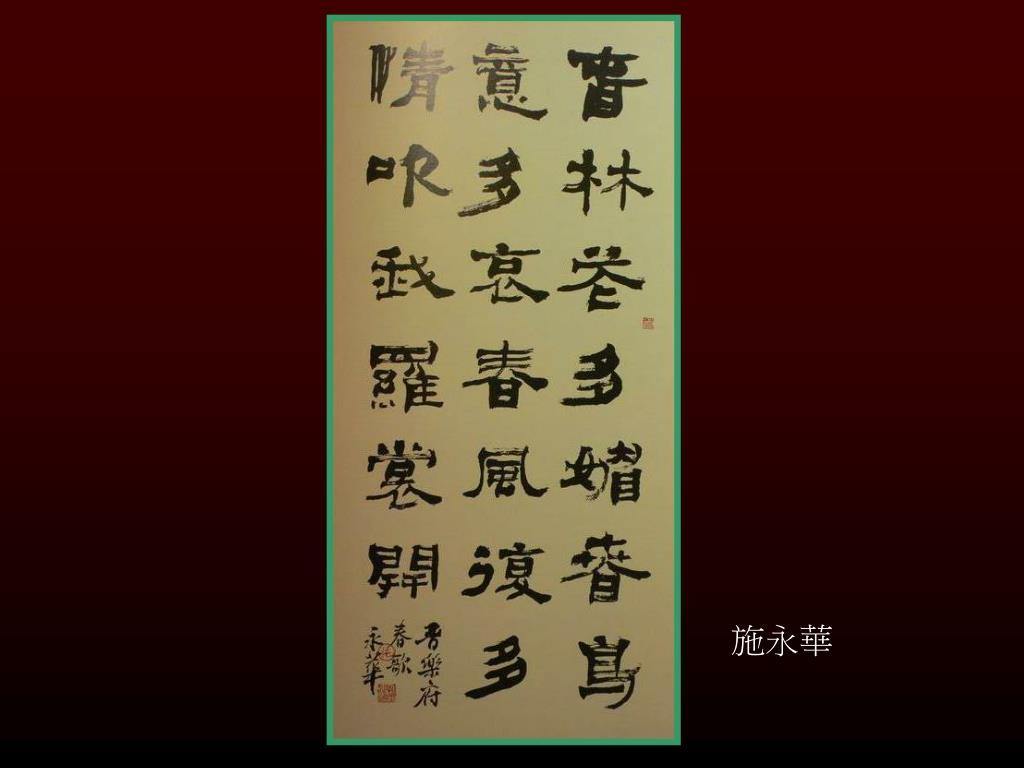 春林花多媚春鳥
意多哀春風復多
情吹我羅裳開
晉樂府
春歌
永華
施永華